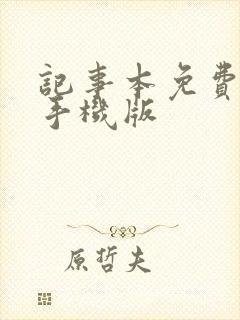 記事本免費
手機版
原哲夫